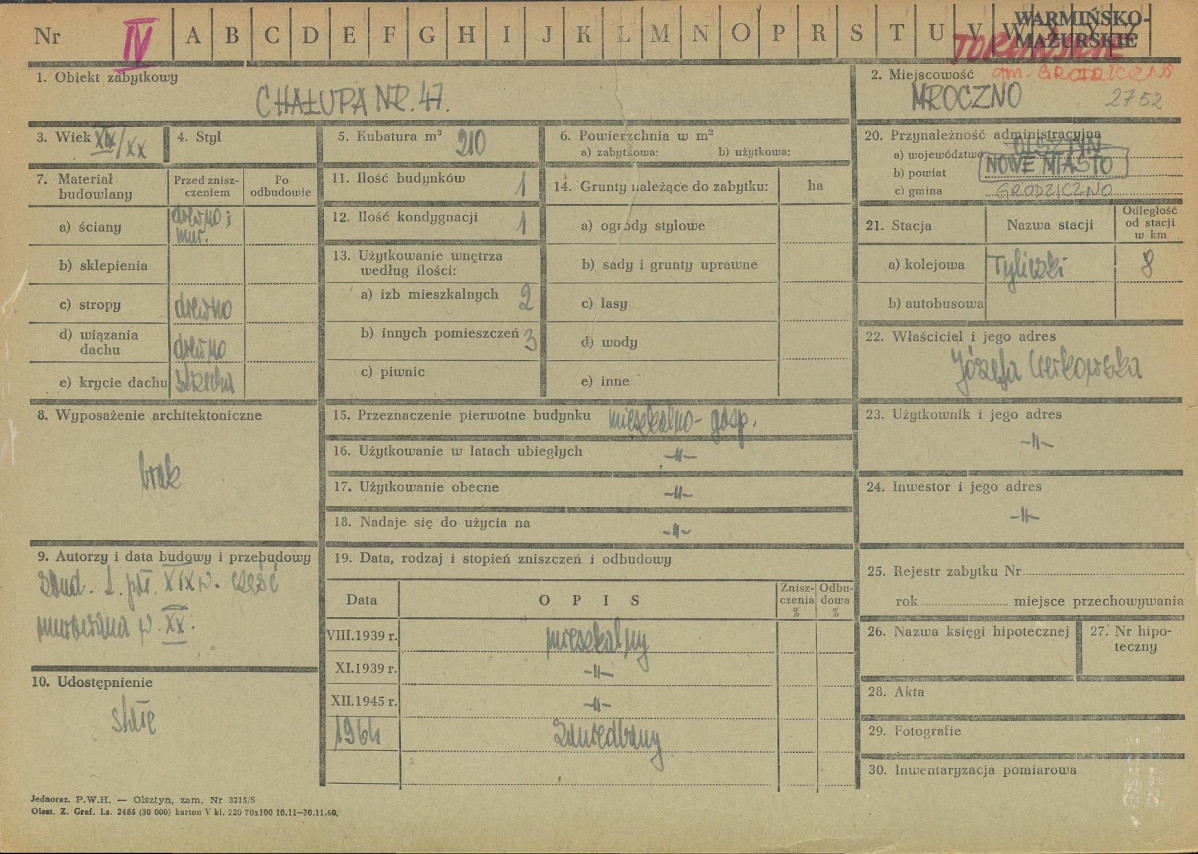 Nr IV A B C D E F G H I J K L M N O P R S T U V W
WARMIŃSKO-
MAZURSKIE
1. Obiekt zabytkowy
CHAŁUPA NR. 47.
2. Miejscowość gm. GRODZICZNO
MROCZNO 2752
3. Wiek XIX/XX
4. Styl
5. Kubatura m³ 210
6. Powierzchnia w m²
a) zabytkowa: b) użytkowa:
20. Przynależność administracyjna
a) województwo OLSZTYN
b) powiat NOWE MIASTO
c) gmina GRODZICZNO
7. Materiał budowlany
Przed zniszczeniem
Po odbudowie
a) ściany drewno i mur.
b) sklepienia
c) stropy drewno
d) wiązania dachu drewno
e) krycie dachu strzecha
11. Ilość budynków 1
12. Ilość kondygnacji 1
13. Użytkowanie wnętrza
według ilości:
a) izb mieszkalnych 2
b) innych pomieszczeń 3
c) piwnic
14. Grunty należące do zabytku: ha
a) ogrody stylowe
b) sady i grunty uprawne
c) lasy
d) wody
e) inne
21. Stacja Nazwa stacji
Odległość
od stacji
w km
a) kolejowa Tyliczki 8
b) autobusowa
22. Właściciel i jego adres
Józefa
8. Wyposażenie architektoniczne
brak
15. Przeznaczenie pierwotne budynku mieszkalno-gosp.
16. Użytkowanie w latach ubiegłych -||-
17. Użytkowanie obecne -||-
18. Nadaje się do użycia na -||-
23. Użytkownik i jego adres
-||-
24. Inwestor i jego adres
-||-
9. Autorzy i data budowy i przebudowy
zbud. 2. poł. XIX w. część
murowana w XX.
10. Udostępnienie
stałe
19. Data, rodzaj i stopień zniszczeń i odbudowy
Data OPIS
Zniszczenia %
Odbudowa %
VIII.1939 r. mieszkalny
XI.1939 r. -||-
XII.1945 r. -||-
1964 zaniedbany
25. Rejestr zabytku Nr
rok miejsce przechowywania
26. Nazwa księgi hipotecznej
27. Nr hipoteczny
28. Akta
29. Fotografie
30. Inwentaryzacja pomiarowa
Jednoraz. P.W.H. — Olsztyn, zam. Nr 3215/S
Olszt. Z. Graf. Lz. 2485 (30 000) karton V kl. 220 70x100 10.11—30.11.60.